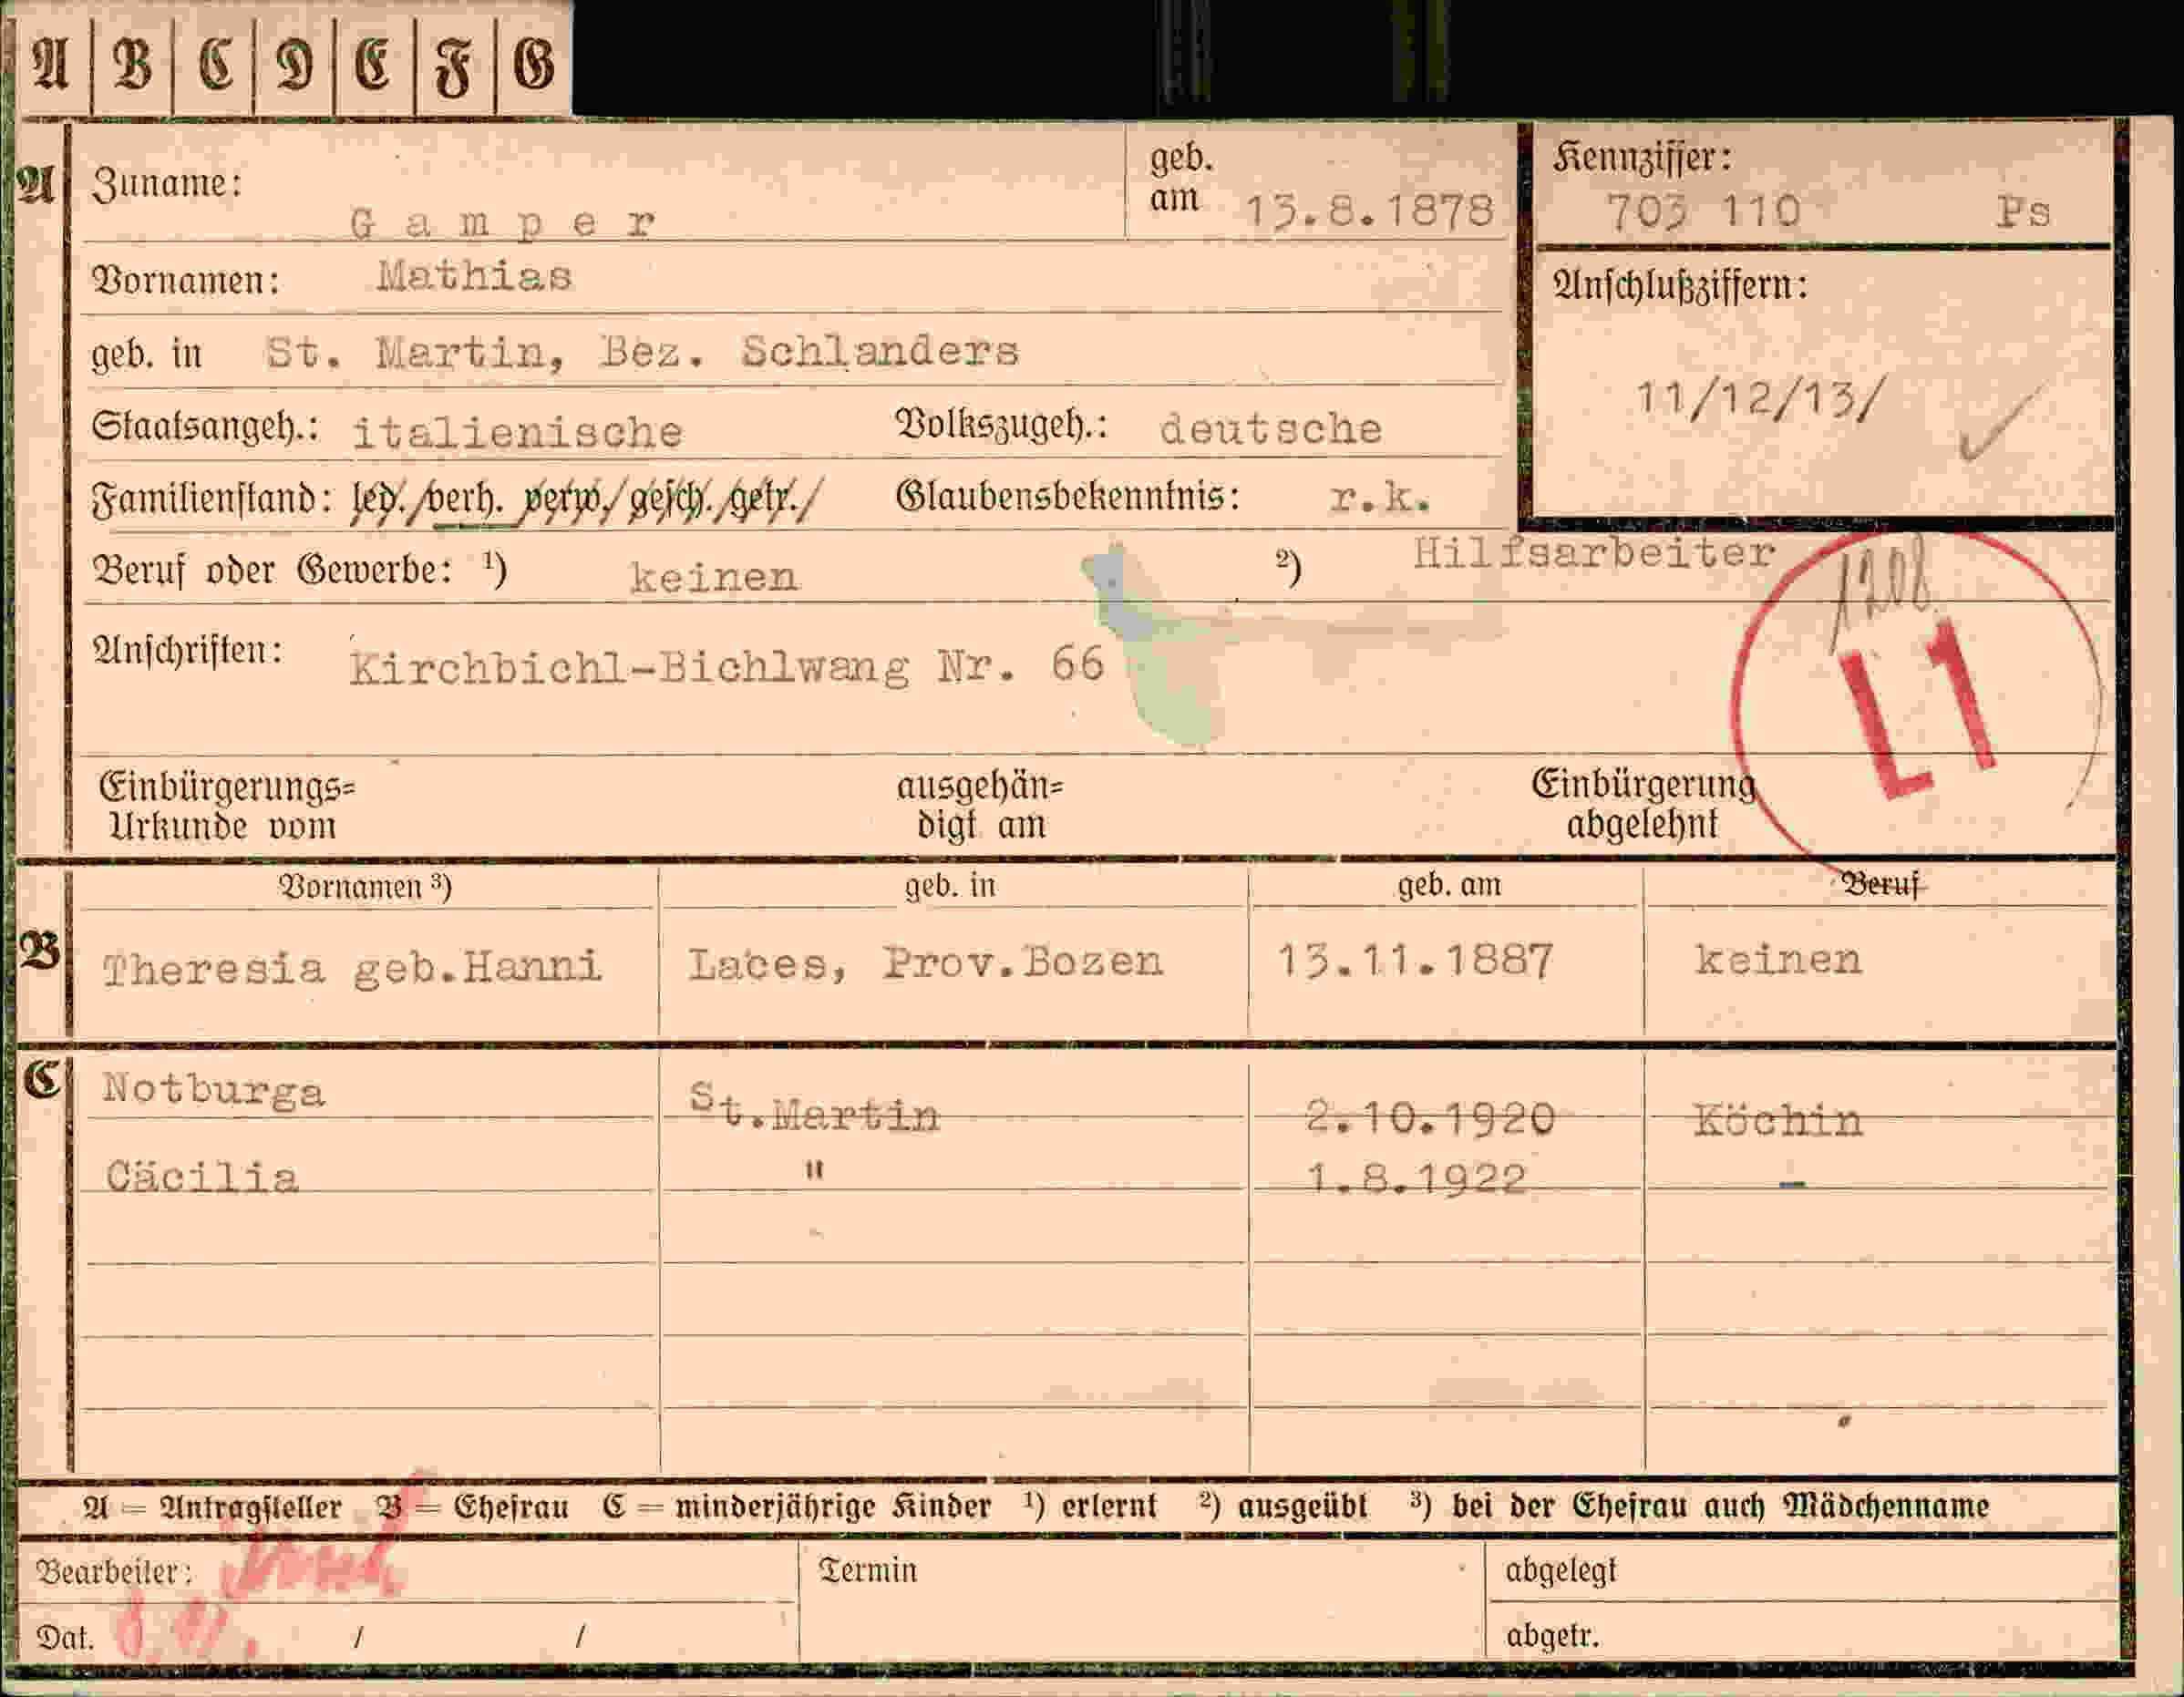 A B C D E F G
A Zuname: Gamper geb. am 13.8.1878
Kennziffer: 703 110 Ps
Vornamen: Mathias
Anschlußziffern:
geb. in St. Martin, Bez. Schlanders
11/12/13/
Staatsangeh.: italienische Volkszugeh.: deutsche
Familienstand: led./verh. verw./gesch./getr./ Glaubensbekenntnis: r.k.
Beruf oder Gewerbe: ¹) keinen ²) Hilfsarbeiter
1208
Anschriften: Kirchbichl-Bichlwang Nr. 66
L1
Einbürgerungs= ausgehän= Einbürgerung
Urkunde vom digt am abgelehnt
Vornamen ³) geb. in geb. am Beruf
B Theresia geb.Hanni Laces, Prov.Bozen 13.11.1887 keinen
C Notburga St.Martin 2.10.1920 Köchin
Cäcilia " 1.8.1922 –
A = Antragsteller B = Ehefrau C = minderjährige Kinder ¹) erlernt ²) ausgeübt ³) bei der Ehefrau auch Mädchenname
Bearbeiter: Termin abgelegt
Dat. / / abgetr.